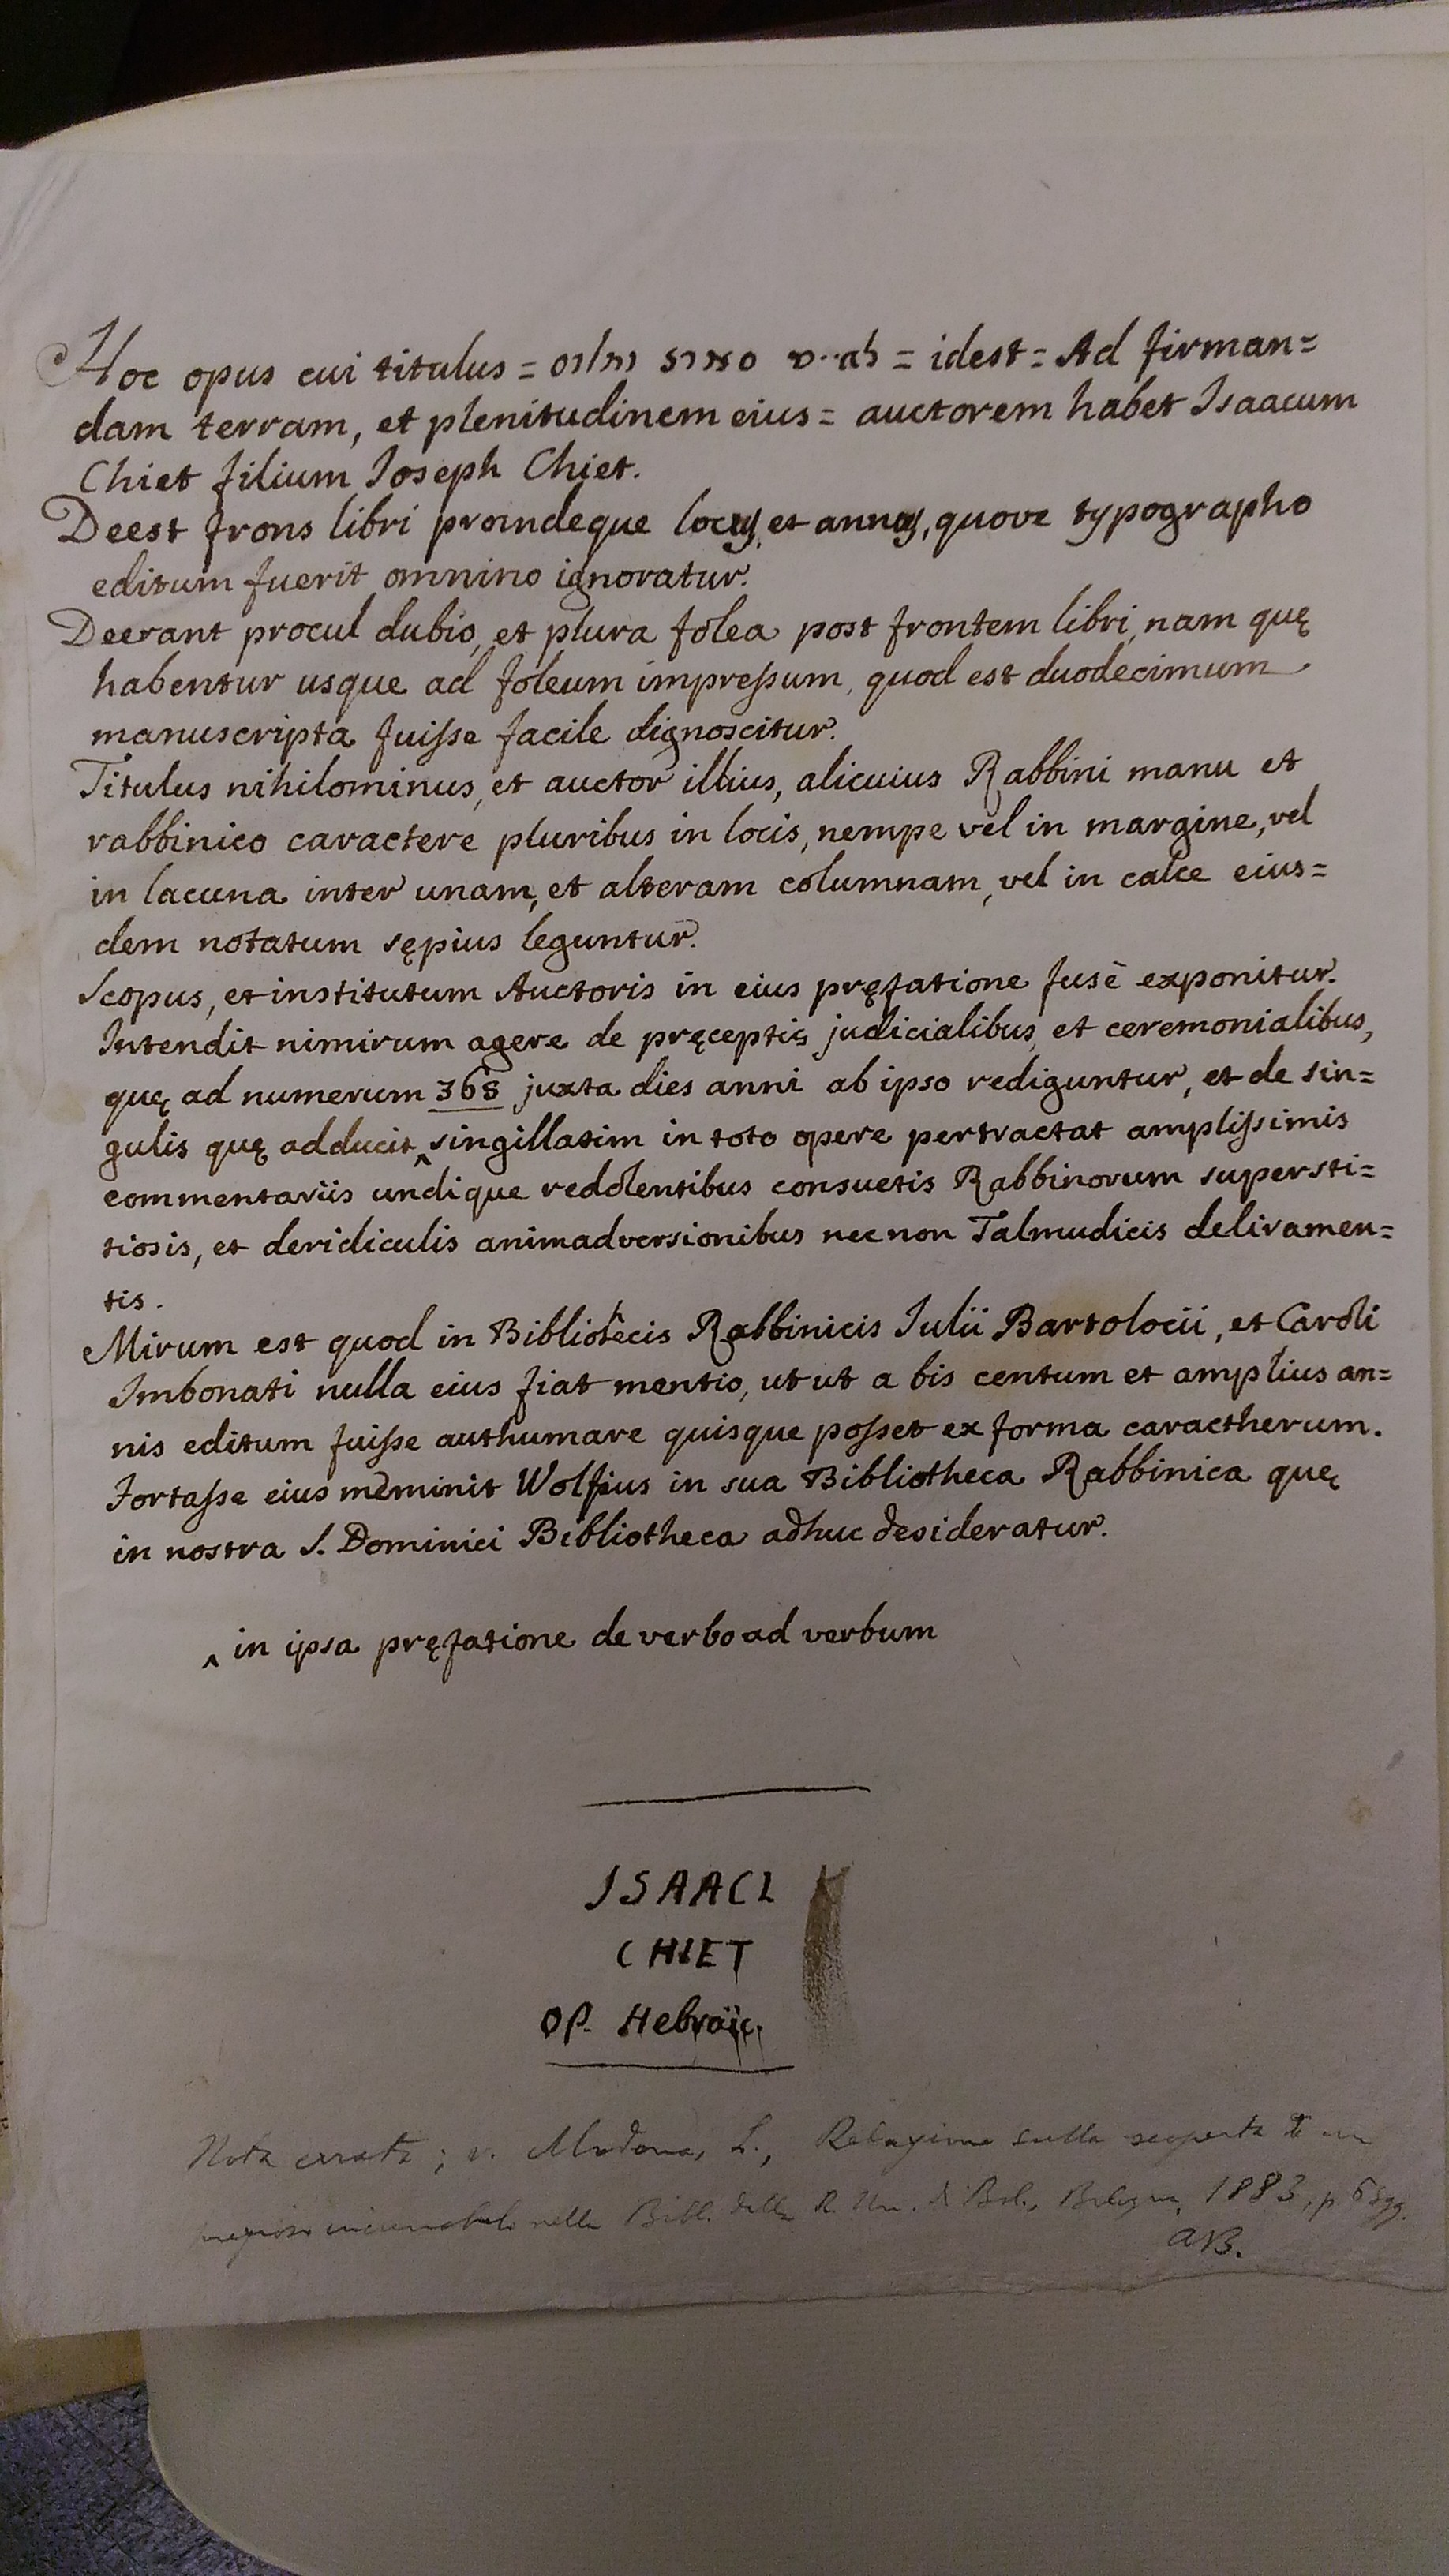 Hoc opus cui titulus = = idest = Ad firman=
dam terram, et plenitudinem eius = auctorem habet Isaacum
Chiet filium Joseph Chiet.
Deest frons libri proindeque locus, et annus, quove typographo
editum fuerit omnino ignoratur.
Deerant procul dubio, et plura folea post frontem libri, nam quę
habentur usque ad foleum impressum, quod est duodecimum
manuscripta fuisse facile dignoscitur.
Titulus nihilominus, et auctor illius, alicuius Rabbini manu et
rabbinico caractere pluribus in locis, nempe vel in margine, vel
in lacuna inter unam, et alteram columnam, vel in calce eius=
dem notatum sępius leguntur.
Scopus, et institutum Auctoris in eius pręfatione fusè exponitur.
Intendit nimirum agere de pręceptis judicialibus, et ceremonialibus,
quę ad numerum 365 juxta dies anni ab ipso rediguntur, et de sin=
gulis quę adducit ‸ singillatim in toto opere pertractat amplissimis
commentariis undique redolentibus consuetis Rabbinorum supersti=
tiosis, et deridiculis animadversionibus necnon Talmudicis deliramen=
tis.
Mirum est quod in Bibliothecis Rabbinicis Julii Bartolocii, et Caroli
Imbonati nulla eius fiat mentio, ut ut a bis centum et amplius an=
nis editum fuisse authumare quisque posset ex forma caractherum.
Fortasse eius meminit Wolfius in sua Bibliotheca Rabbinica quę
in nostra S. Dominici Bibliotheca adhuc desideratur.
‸ in ipsa pręfatione de verbo ad verbum
ISAACI
CHIET
OP. Hebraïc.
Nota errata; v. Modona, L., Relazione sulla scoperta di un
prezioso incunabulo nella Bibl. della R. Un. di Bol., Bologna, 1883, p 6 sgg.
AB.